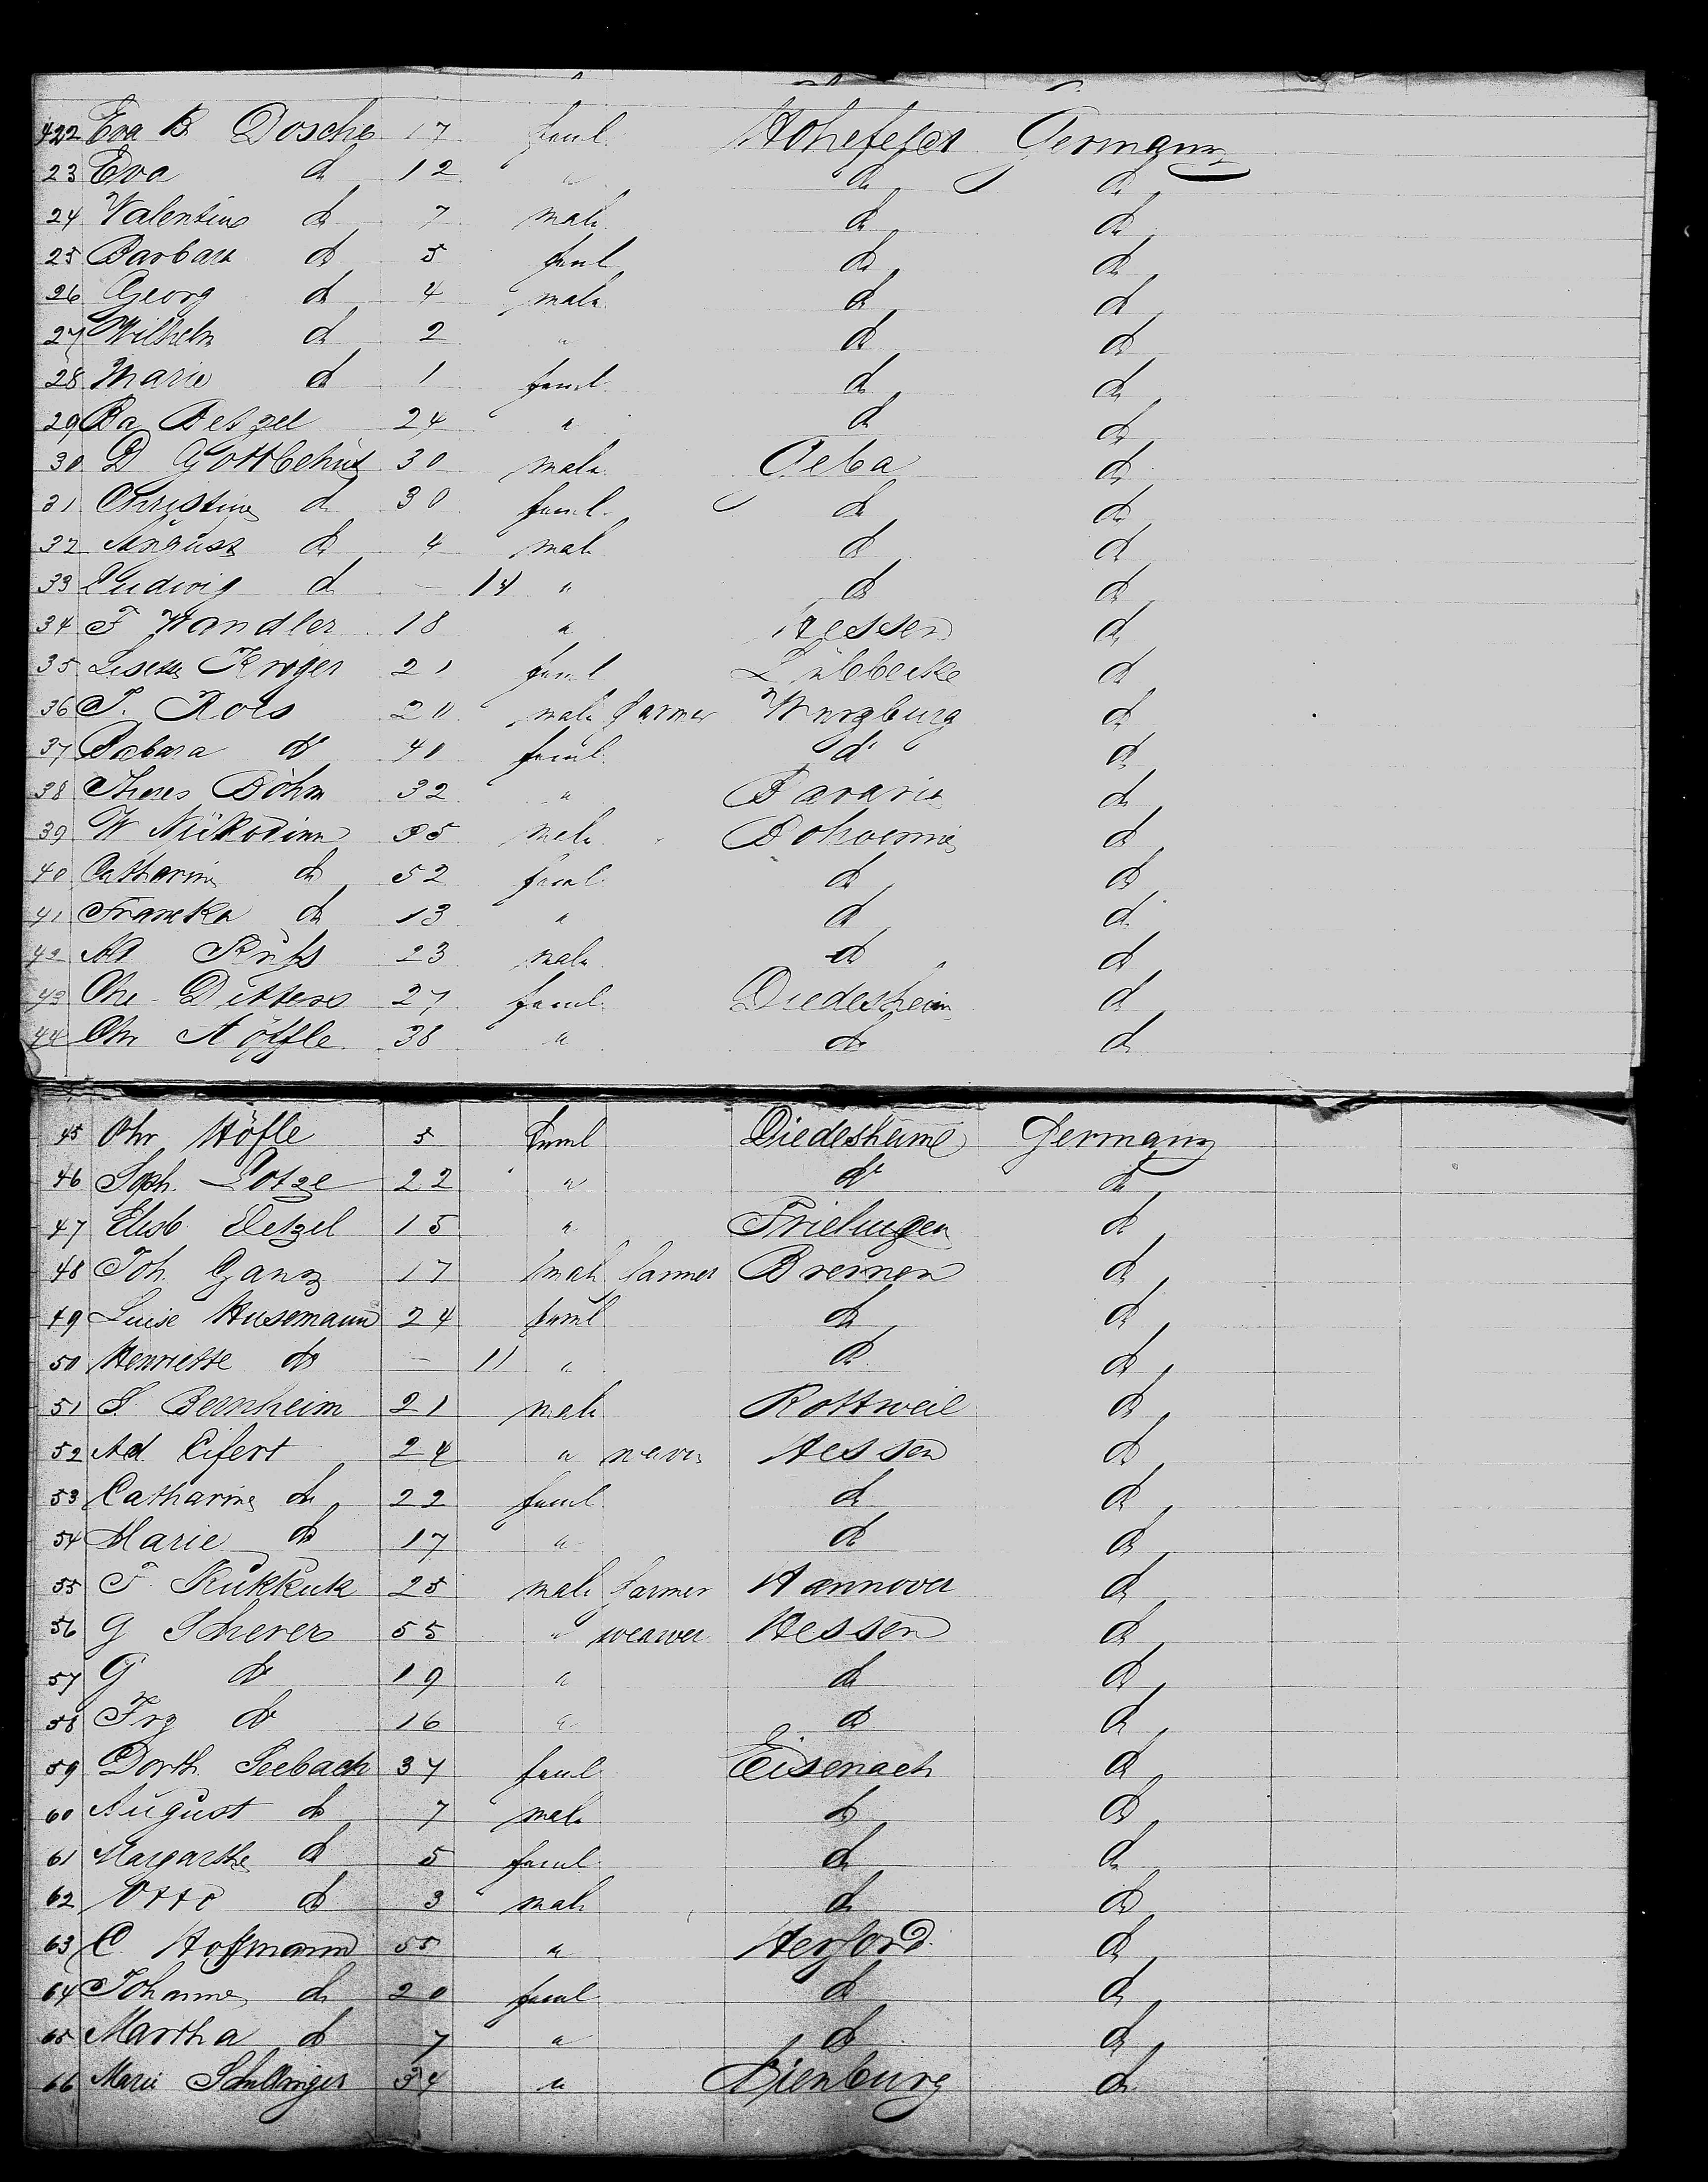 422 Eva B. Dosche 17 feml. Hohefeld Germany
23 Eva do 12 " do do
24 Valentine do 7 male do do
25 Barbara do 5 feml do do
26 Georg do 4 male do do
27 Wilhelm do 2 " do do
28 Marie do 1 feml. do do
29 Ba Betzel 24 " do do
30 D Gottbehüt 30 male Geba do
31 Christine do 30 feml. do do
32 August do 4 male do do
33 Ludwig do — 14 " do do
34 F Wandler 18 " Hessen do
35 Lisette Kröger 21 feml Lübbecke do
36 20 male farmer Wurzburg do
37 Babara do 40 feml. do do
38 Theres Böhm 32 " Bavaria do
39 W male Bohoemia do
40 Catharine do 52 feml. do do
41 Franzka do 13 " do do
42 23 male do do
43 Chr. 27 feml. Diedesheim do
44 Chr Höffle 38 " do do
45 Chr Höfle 5 feml Diedesheime Germany
46 Soph. Lotze 22 " do do
47 Elisb. Detzel 15 " Frielingen do
48 Joh. Ganz 17 male farmer Bremen do
49 Luise Husemann 24 feml do do
50 Henriette do — 11 " do do
51 S. Bernheim 21 male Rottweil do
52 Ad. Eifert 24 " weaver Hessen do
53 Catharine do 22 feml do do
54 Marie do 17 " do do
55 F. Kukkuk 25 male farmer Hannover do
56 G Scherer 55 " weawer Hessen do
57 G do 19 " do do
58 Frz do 16 " do do
59 Dorth. Seebach 37 feml Eisenach do
60 August do 7 male do do
61 Margarethe do 5 feml. do do
62 Otto do 3 male do do
63 C. Hoffmann 55 " Herford. do
64 Johanne do 20 feml do do
65 Martha do 7 " do do
66 Marie Schillinger 34 " Nienburg do